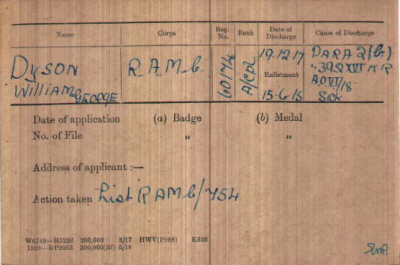 Name
Corps
Regl.
No.
Rank
Date of
Discharge
Cause of Discharge
DYSON
WILLIAM GEORGE
R.A.M.C.
60174
A/CPL
19.12.17
Enlistment
15.6.15
PARA 2(b)
392 XVI KR
Sick
Date of application
(a) Badge
(b) Medal
No. of File
"
"
Address of applicant :—
Action taken List RAMC/454
200,000 8/17 HWV(P968)